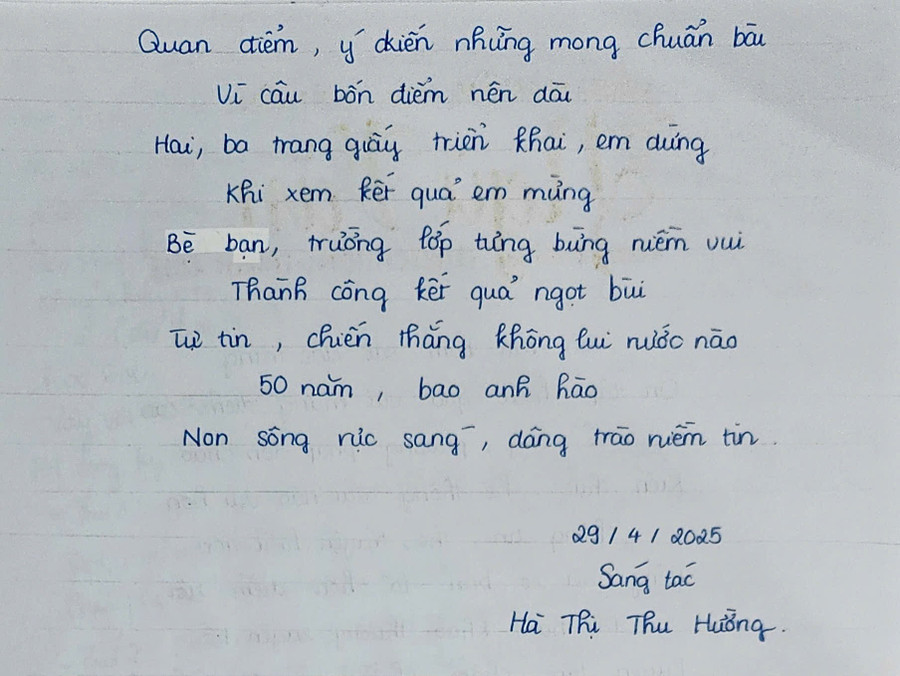 Quan điểm, ý kiến những mong chuẩn bài
Vì câu bốn điểm nên dài
Hai, ba trang giấy triển khai, em dừng
Khi xem kết quả em mừng
Bè bạn, trường lớp tưng bừng niềm vui
Thành công kết quả ngọt bùi
Tự tin, chiến thắng không lui nước nào
50 năm, bao anh hào
Non sông rực sáng, dâng trào niềm tin.
29/4/2025
Sáng tác
Hà Thị Thu Hường.